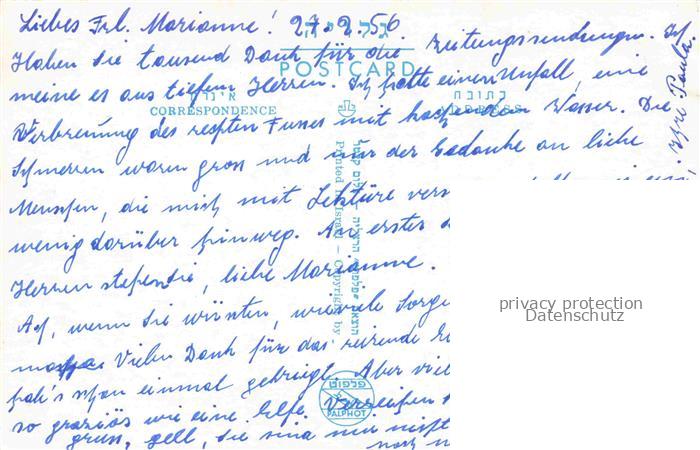 Liebes Frl. Marianne! 27.2.56
Haben Sie tausend Dank für die Zeitungssendungen. Ich
גלויה
POSTCARD
meine es aus tiefem Herzen. Ich hatte einen Unfall, eine
CORRESPONDENCE
כתובת
ADDRESS
Verbrennung des rechten Fusses mit kochendem Wasser. Die
Schmerzen waren gross und nur der Gedanke an liebe
Menschen, die mich mit Lektüre vers
wenig darüber hinweg. An erster
Herzen stehen Sie, liebe Marianne.
Ach, wenn Sie wüssten, wieviele Sorge
Vielen Dank für das reizende
hab's schon einmal gekriegt. Aber viel
so graziös wie eine Elfe. Verzeihen
gruss, gell, die sind mir nicht
noch
Ihre Paula.
Printed in Israel — Copyright by
פלפוט
PALPHOT
privacy protection
Datenschutz